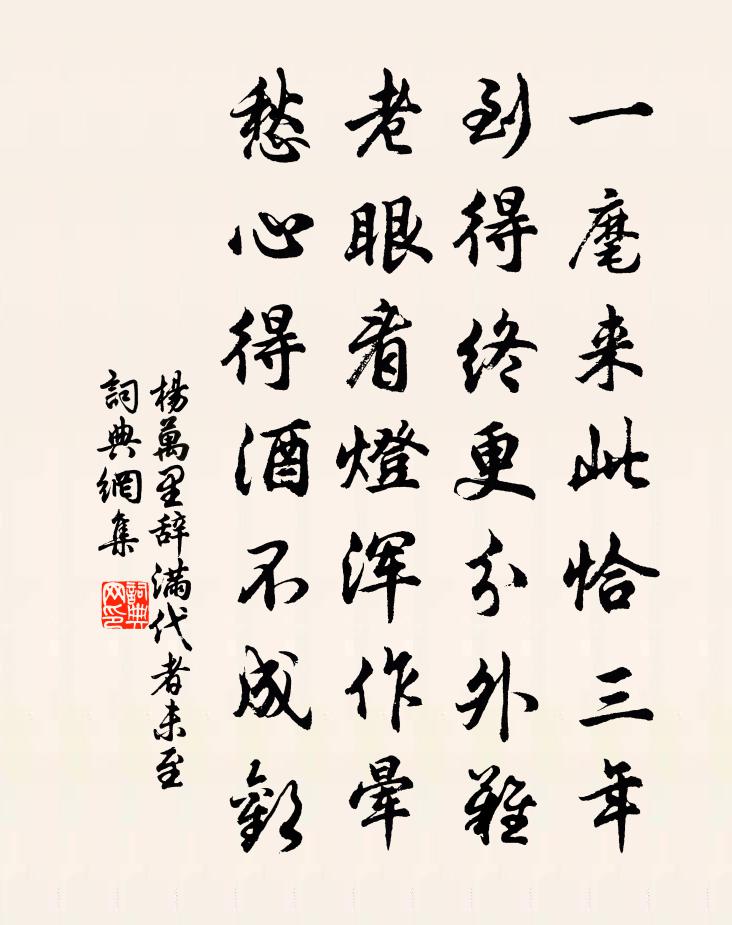 一麾来此恰三年
到得终更分外難
老眼看燈渾作暈
愁心得酒不成歡
楊萬里辞满代者未至
詞典網集
詞典网印